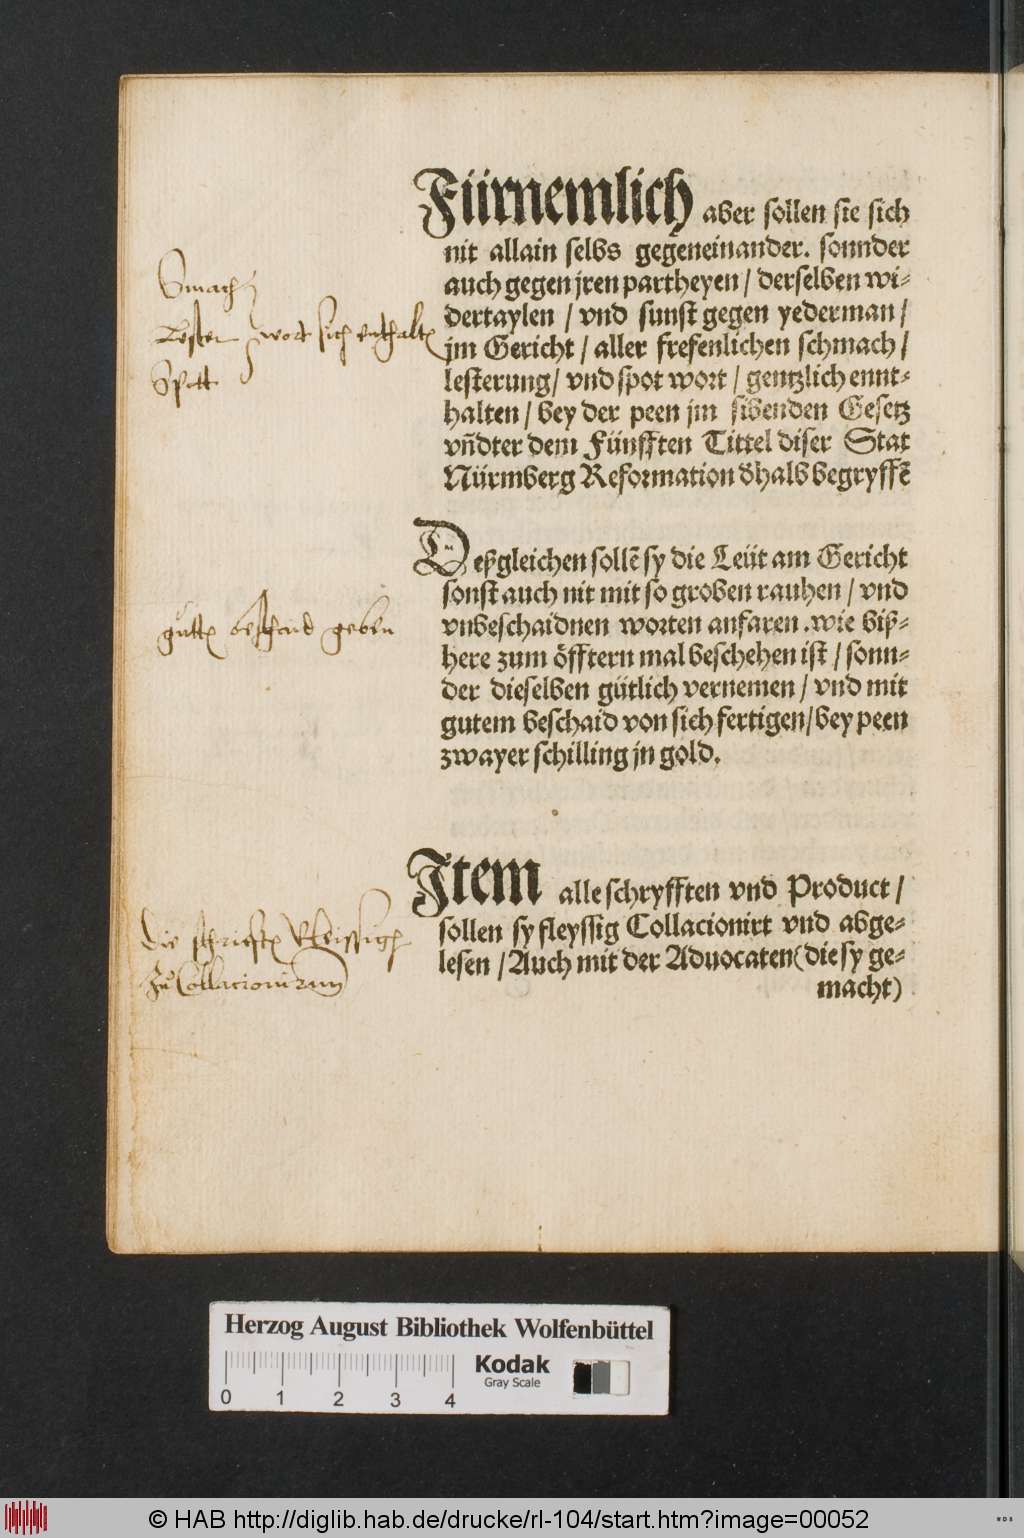 Fürnemlich aber sollen sie sich
nit allain selbs gegeneinander. sonnder
auch gegen jren partheyen / derselben wi-
dertaylen / vnd sunst gegen yederman /
jm Gericht / aller frefenlichen schmach /
lesterung / vnd spot wort / gentzlich ennt-
halten / bey der peen jm sibenden Gesetz
vñdter dem Fünfften Tittel diser Stat
Nürmberg Reformation dhalb begryffē
Smach
Lester wort sich enthaltē
Spott
Deßgleichen sollē sy die Leüt am Gericht
sonst auch nit mit so groben rauhen / vnd
vnbeschaidnen worten anfaren .wie biß-
here zum öfftern mal beschehen ist / sonn-
der dieselben gütlich vernemen / vnd mit
gutem beschaid von sich fertigen / bey peen
zwayer schilling jn gold.
guttē beschaid geben
Item alle schryfften vnd Product /
sollen sy fleyssig Collacionirt vnd abge-
lesen / Auch mit der Aduocaten (die sy ge-
macht)
die schrifftē vleissigē
Zu Collacionirnn
Herzog August Bibliothek Wolfenbüttel
Kodak
Gray Scale
0 1 2 3 4
© HAB http://diglib.hab.de/drucke/rl-104/start.htm?image=00052